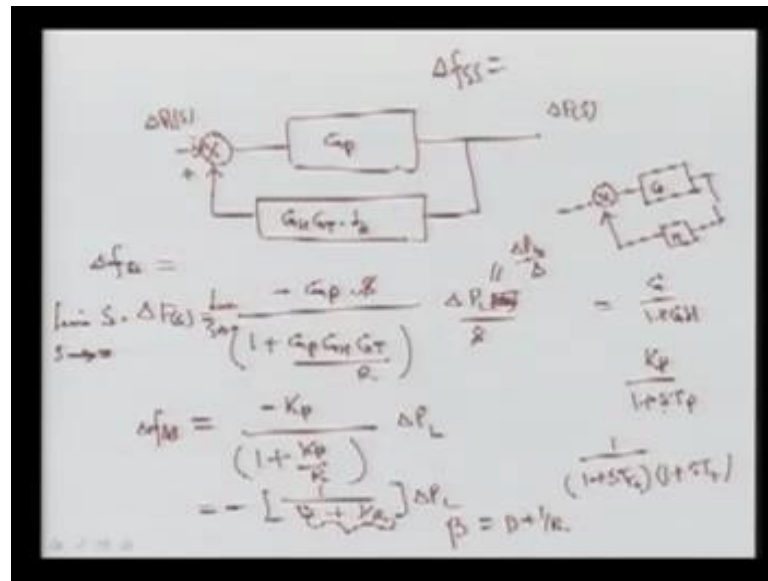 Δfss =
ΔPL(s)
ΔF(s)
Gp
+
GH GT · 1/R
G
H
Δfss =
Lim S · ΔF(s) = Lim - Gp · s / (1 + Gp GH GT / R) ΔPL / s
= G / 1+GH
Kp / 1+STp
Δfss = -Kp / (1 + Kp/R) ΔPL
1 / (1+STH)(1+STT)
= - [1 / D + 1/R] ΔPL
β = D + 1/R.